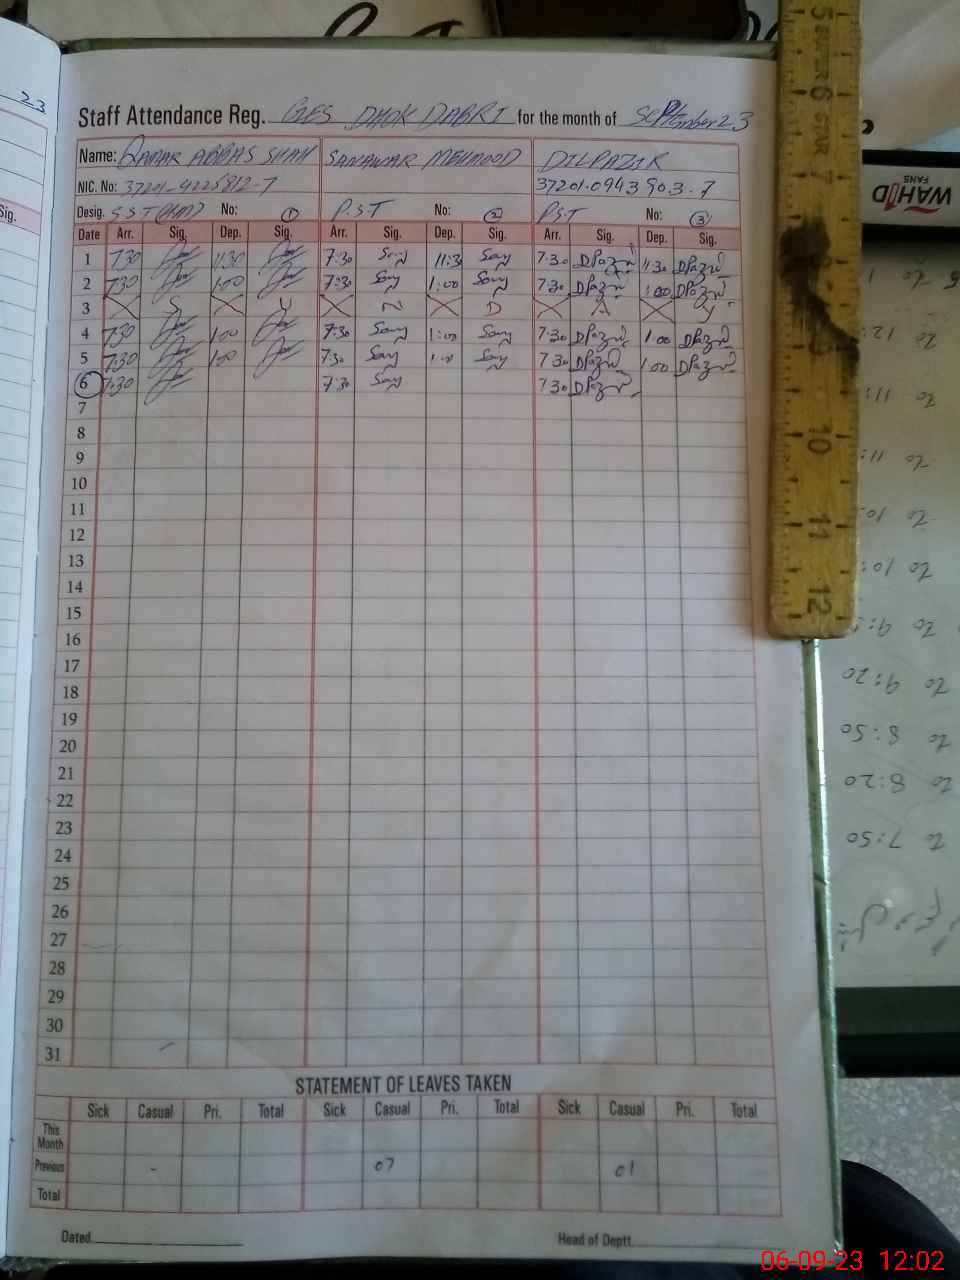 23
Staff Attendance Reg. GES DHOK DABRI for the month of September 23
Name: QAMAR ABBAS SHAH SANAWAR MEHMOOD DILPAZIR
NIC. No: 37201-4225812-7 37201-0943903-7
Desig. S.S.T No: 1 P.S.T No: 2 P.S.T No: 3
Date Arr. Sig. Dep. Sig. Arr. Sig. Dep. Sig. Arr. Sig. Dep. Sig.
1 7:30 11:30 7:30 11:3 7:30 11:30
2 7:30 1:00 7:30 1:00 7:30 1:00
3 S U N D A Y
4 7:30 1:00 7:30 1:00 7:30 1:00
5 7:30 1:00 7:30 1:00 7:30 1:00
6 7:30 7:30 7:30
7
8
9
10
11
12
13
14
15
16
17
18
19
20
21
22
23
24
25
26
27
28
29
30
31
STATEMENT OF LEAVES TAKEN
Sick Casual Pri. Total Sick Casual Pri. Total Sick Casual Pri. Total
This Month
Previous - 07 01
Total
Dated Head of Deptt.
Sig.
6
7
10
11
12
WAHID
FANS
to 11:
to 11:
to 10:
to 10:
to 9:20
to 8:50
to 8:20
to 7:50
06-09-23 12:02